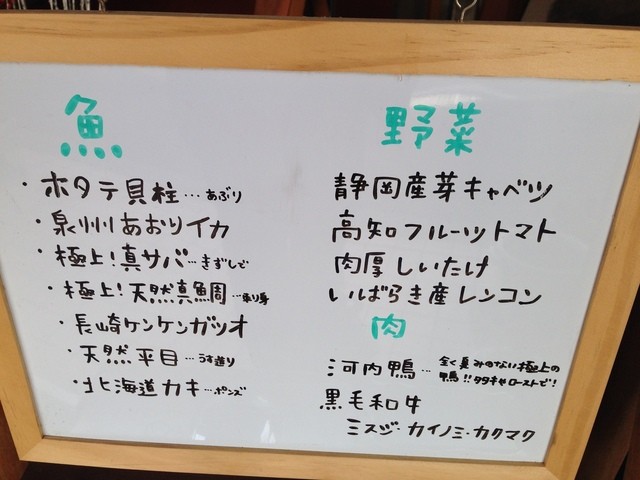 魚
・ホタテ貝柱…あぶり
・泉州あおりイカ
・極上!真サバ…きずしで
・極上!天然真鯛…
・長崎ケンケンガツオ
・天然平目…うす造り
・北海道カキ…ポンズ
野菜
静岡産芽キャベツ
高知フルーツトマト
肉厚しいたけ
いばらき産レンコン
肉
河内鴨…全く臭みのない極上の
鴨!!タタキやローストで!
黒毛和牛
ミスジ・カイノミ・カクマク